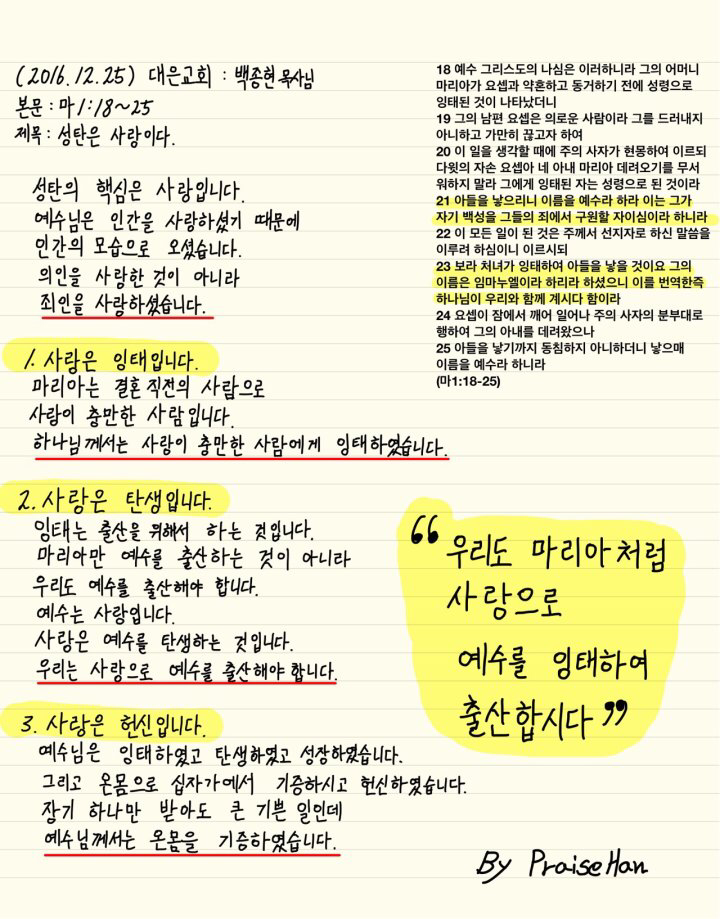 (2016.12.25) 대은교회 : 백종현 목사님
본문 : 마 1:18~25
제목 : 성탄은 사랑이다.
성탄의 핵심은 사랑입니다.
예수님은 인간을 사랑하셨기 때문에
인간의 모습으로 오셨습니다.
의인을 사랑한 것이 아니라
죄인을 사랑하셨습니다.
1. 사랑은 잉태입니다.
마리아는 결혼 직전의 사람으로
사랑이 충만한 사람입니다.
하나님께서는 사랑이 충만한 사람에게 잉태하였습니다.
2. 사랑은 탄생입니다.
잉태는 출산을 위해서 하는 것입니다.
마리아만 예수를 출산하는 것이 아니라
우리도 예수를 출산해야 합니다.
예수는 사랑입니다.
사랑은 예수를 탄생하는 것입니다.
우리는 사랑으로 예수를 출산해야 합니다.
3. 사랑은 헌신입니다.
예수님은 잉태하였고 탄생하였고 성장하였습니다.
그리고 온몸으로 십자가에서 기증하시고 헌신하였습니다.
장기 하나만 받아도 큰 기쁜 일인데
예수님께서는 온몸을 기증하였습니다.
18 예수 그리스도의 나심은 이러하니라 그의 어머니
마리아가 요셉과 약혼하고 동거하기 전에 성령으로
잉태된 것이 나타났더니
19 그의 남편 요셉은 의로운 사람이라 그를 드러내지
아니하고 가만히 끊고자 하여
20 이 일을 생각할 때에 주의 사자가 현몽하여 이르되
다윗의 자손 요셉아 네 아내 마리아 데려오기를 무서
워하지 말라 그에게 잉태된 자는 성령으로 된 것이라
21 아들을 낳으리니 이름을 예수라 하라 이는 그가
자기 백성을 그들의 죄에서 구원할 자이심이라 하니라
22 이 모든 일이 된 것은 주께서 선지자로 하신 말씀을
이루려 하심이니 이르시되
23 보라 처녀가 잉태하여 아들을 낳을 것이요 그의
이름은 임마누엘이라 하리라 하셨으니 이를 번역한즉
하나님이 우리와 함께 계시다 함이라
24 요셉이 잠에서 깨어 일어나 주의 사자의 분부대로
행하여 그의 아내를 데려왔으나
25 아들을 낳기까지 동침하지 아니하더니 낳으매
이름을 예수라 하니라
(마1:18-25)
“우리도 마리아처럼
사랑으로
예수를 잉태하여
출산합시다”
By PraiseHan